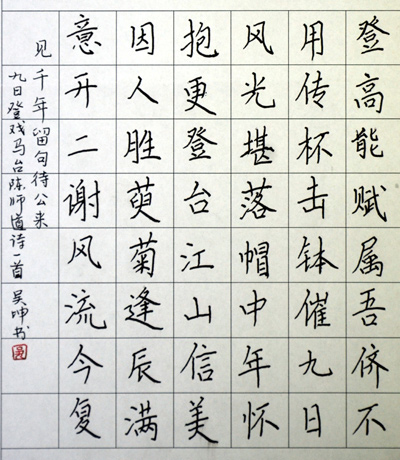 登高能赋属吾侪不
用传杯击钵催九日
风光堪落帽中年怀
抱更登台江山信美
因人胜萸菊逢辰满
意开二谢风流今复
见千年留句待公来
九日登戏马台陈师道诗一首 吴坤书